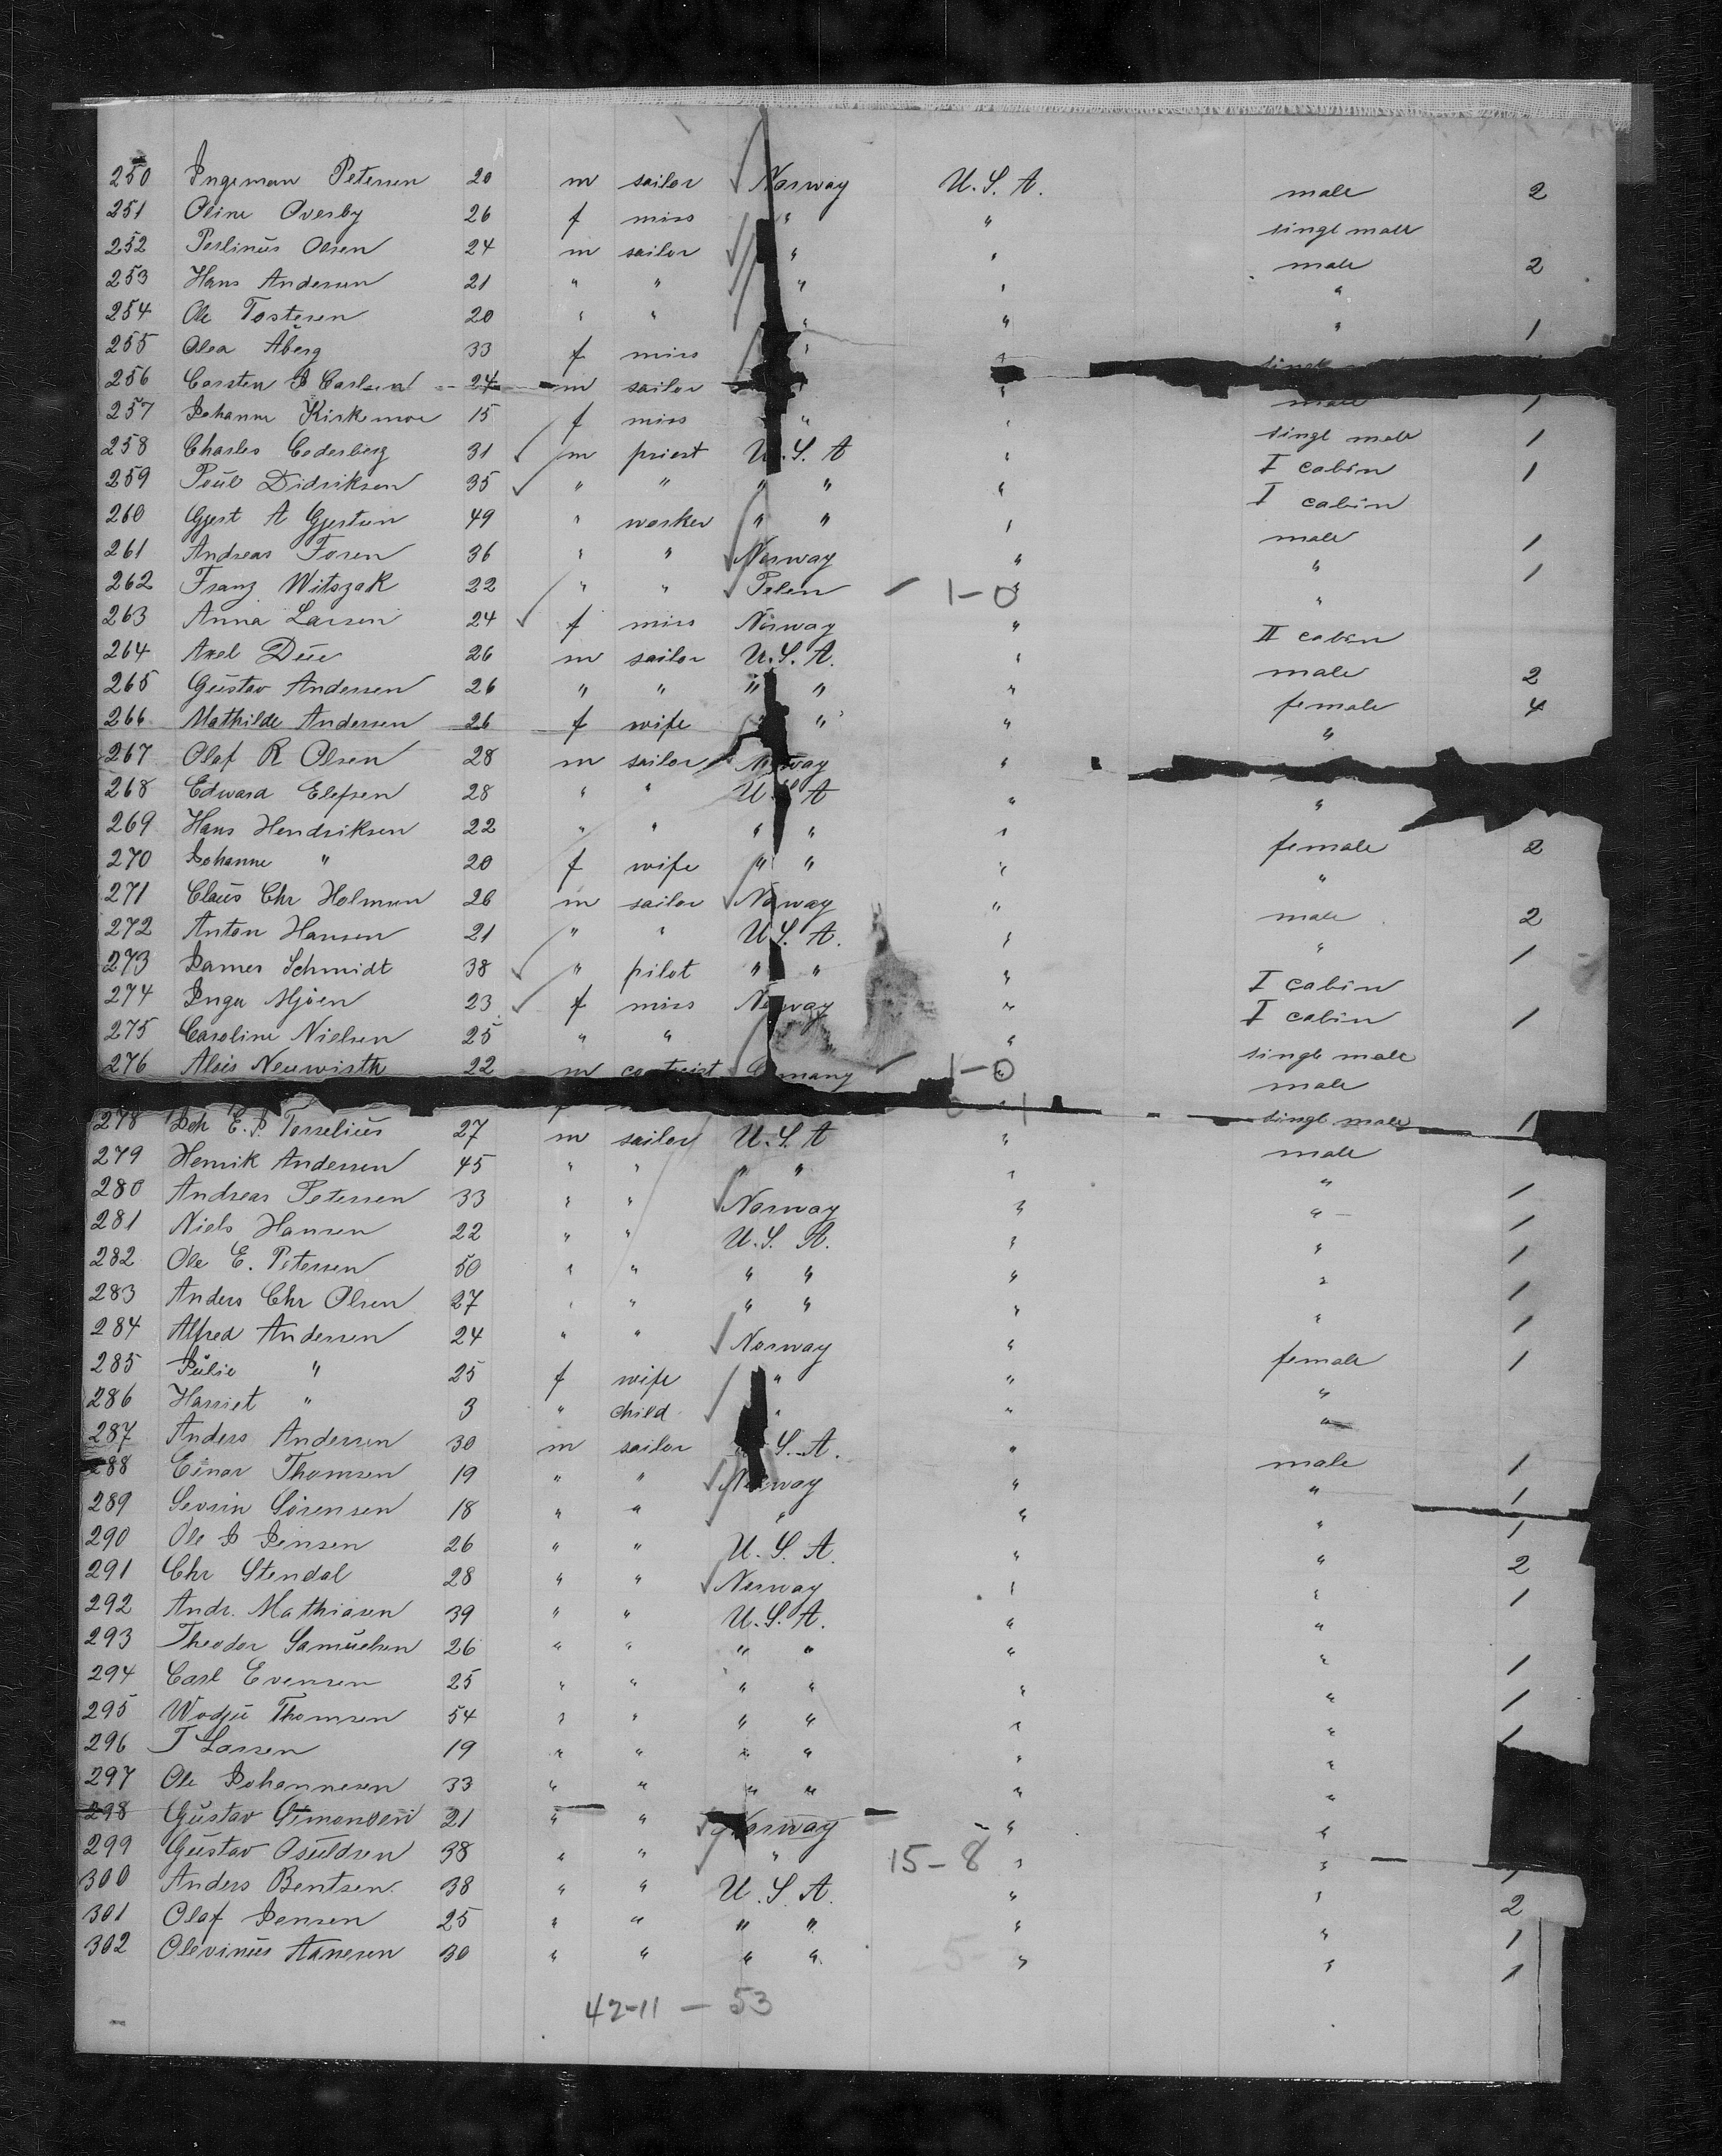 250 Ingeman Petersen 20 m sailor Norway U.S.A. male 2
251 Oline Overby 26 f miss " " singl male
252 Perlinus Olsen 24 m sailor " " male 2
253 Hans Andersen 21 " " " " "
254 Ole Tostesen 20 " " " " " 1
255 Olea Åberg 33 f miss " "
256 Carsten J Carlsen 24 m sailor " " male 1
257 Johanne Kirkemoe 15 f miss " " singl male 1
258 Charles Cederberg 31 m priest U.S.A " I cabin 1
259 Poul Didriksen 35 " " " " " I cabin
260 Gjert A Gjertsen 49 " worker " " " male 1
261 Andreas Fosen 36 " " Norway " " 1
262 Franz Witozak 22 " " Polen 1-0 " "
263 Anna Larsen 24 f miss Norway " II cabin
264 Axel Due 26 m sailor U.S.A. " male 2
265 Gustav Andersen 26 " " " " " female 4
266 Mathilde Andersen 26 f wife " " "
267 Olaf R Olsen 28 m sailor Norway "
268 Edward Elefsen 28 " " U.S A " "
269 Hans Hendriksen 22 " " " " " female 2
270 Johanne " 20 f wife " " " "
271 Claus Chr Holmsen 26 m sailor Norway " male 2
272 Anton Hansen 21 " " U.S.A. " " 1
273 James Schmidt 38 " pilot " " " I cabin
274 Inga Mjöen 23 f miss Norway " I cabin 1
275 Caroline Nielsen 25 " " " singl male
276 Alois Neuwirth 22 m Germany 1-0 " male
singl male 1
278 Joh E. J. Torselius 27 m sailor U.S.A " male
279 Henrik Andersen 45 " " " " " " 1
280 Andreas Petersen 33 " " Norway " " 1
281 Niels Hansen 22 " " U.S. A. " " 1
282 Ole E. Petersen 50 " " " " " " 1
283 Anders Chr Olsen 27 " " " " " " 1
284 Alfred Andersen 24 " " Norway " female 1
285 Julie " 25 f wife " " "
286 Harriet " 3 " child " " "
287 Anders Andersen 30 m sailor S. A. " male 1
288 Einar Thomsen 19 " " Norway " " 1
289 Sevrin Sörensen 18 " " " " " 1
290 Ole J Jensen 26 " " U. S. A. " " 2
291 Chr Stendal 28 " " Norway " " 1
292 Andr. Mathiasen 39 " " U.S.A. " "
293 Theodor Samuelsen 26 " " " " " " 1
294 Carl Evensen 25 " " " " " " 1
295 Thomsen 54 " " " " " " 1
296 T Larsen 19 " " " " " "
297 Ole Johannesen 33 " " " " " "
298 Gustav Simonsen 21 " " Norway " "
299 Gustav Osuldsen 38 " " " 15-8 " " 1
300 Anders Bentsen 38 " " U.S.A. " " 2
301 Olaf Jensen 25 " " " " " " 1
302 Olevinus Aanesen 30 " " " " " " 1
42-11 - 53